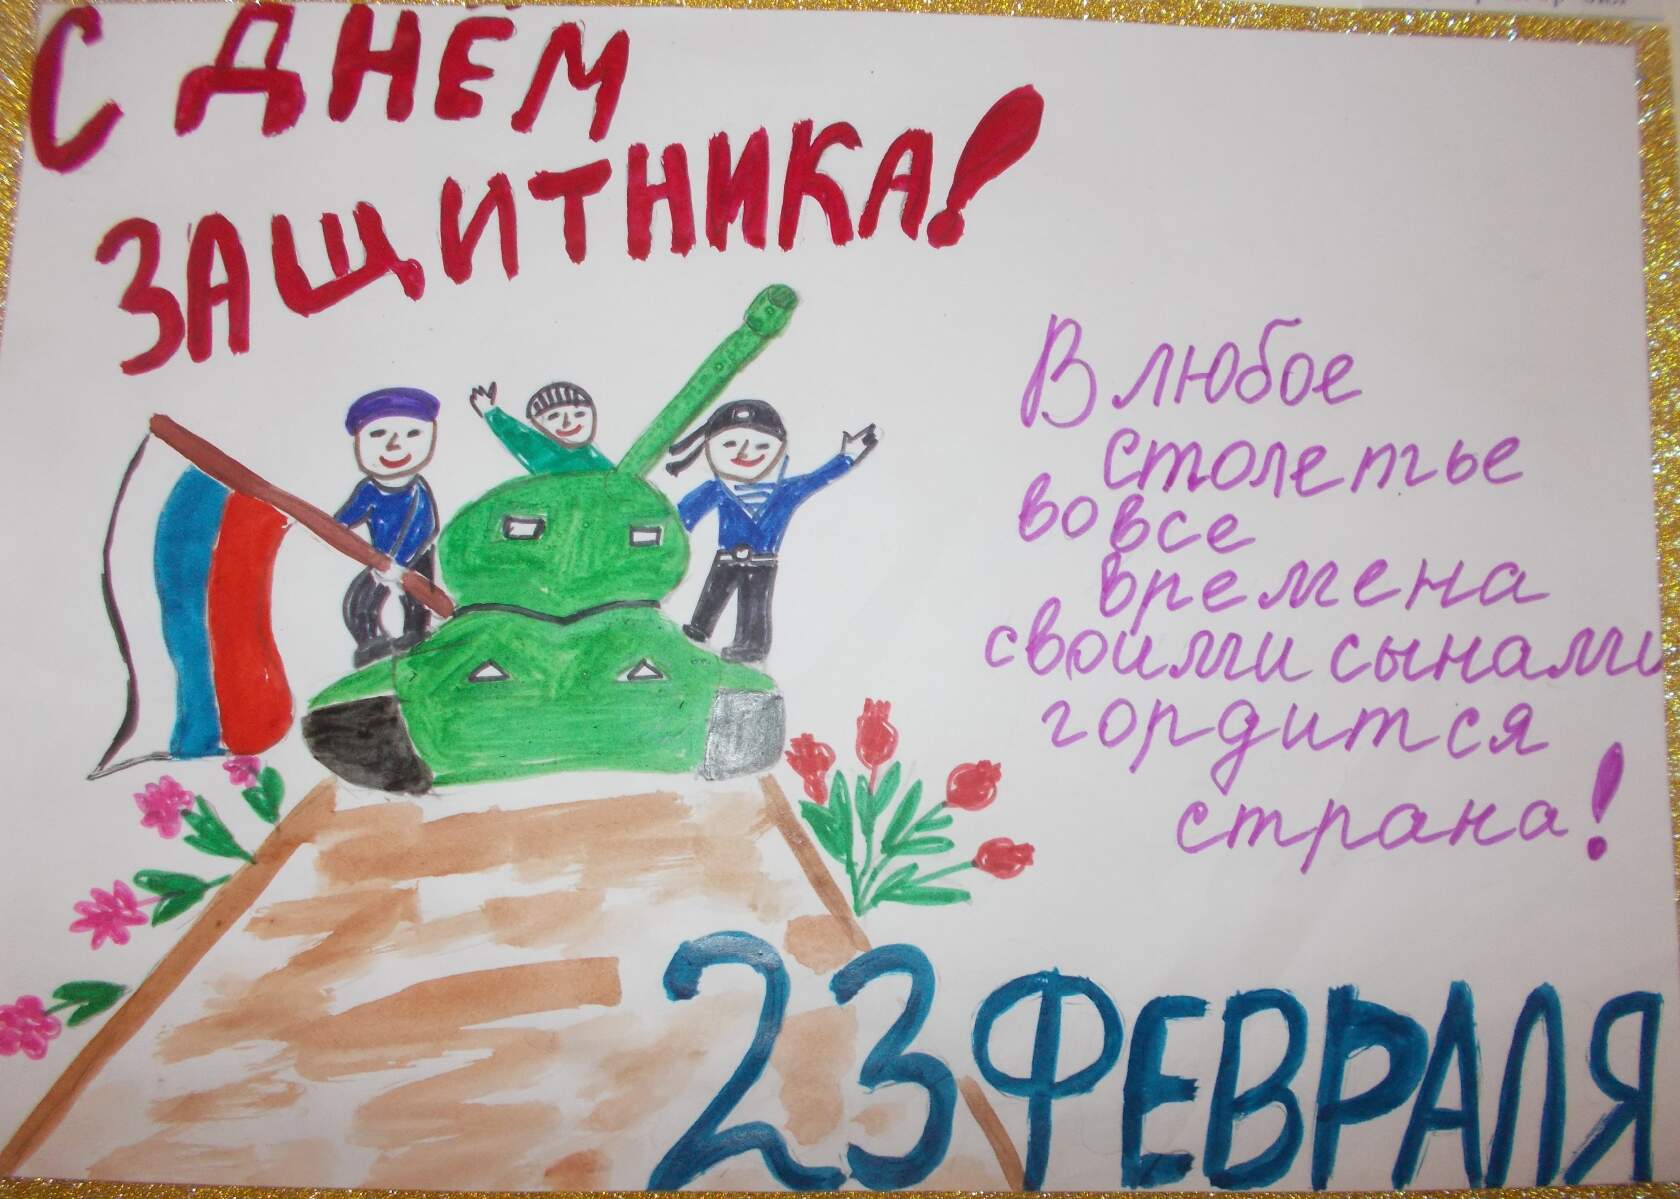 С ДНЁМ
ЗАЩИТНИКА!
В любое
столетье
во все
времена
своими сынами
гордится
страна!
23 ФЕВРАЛЯ